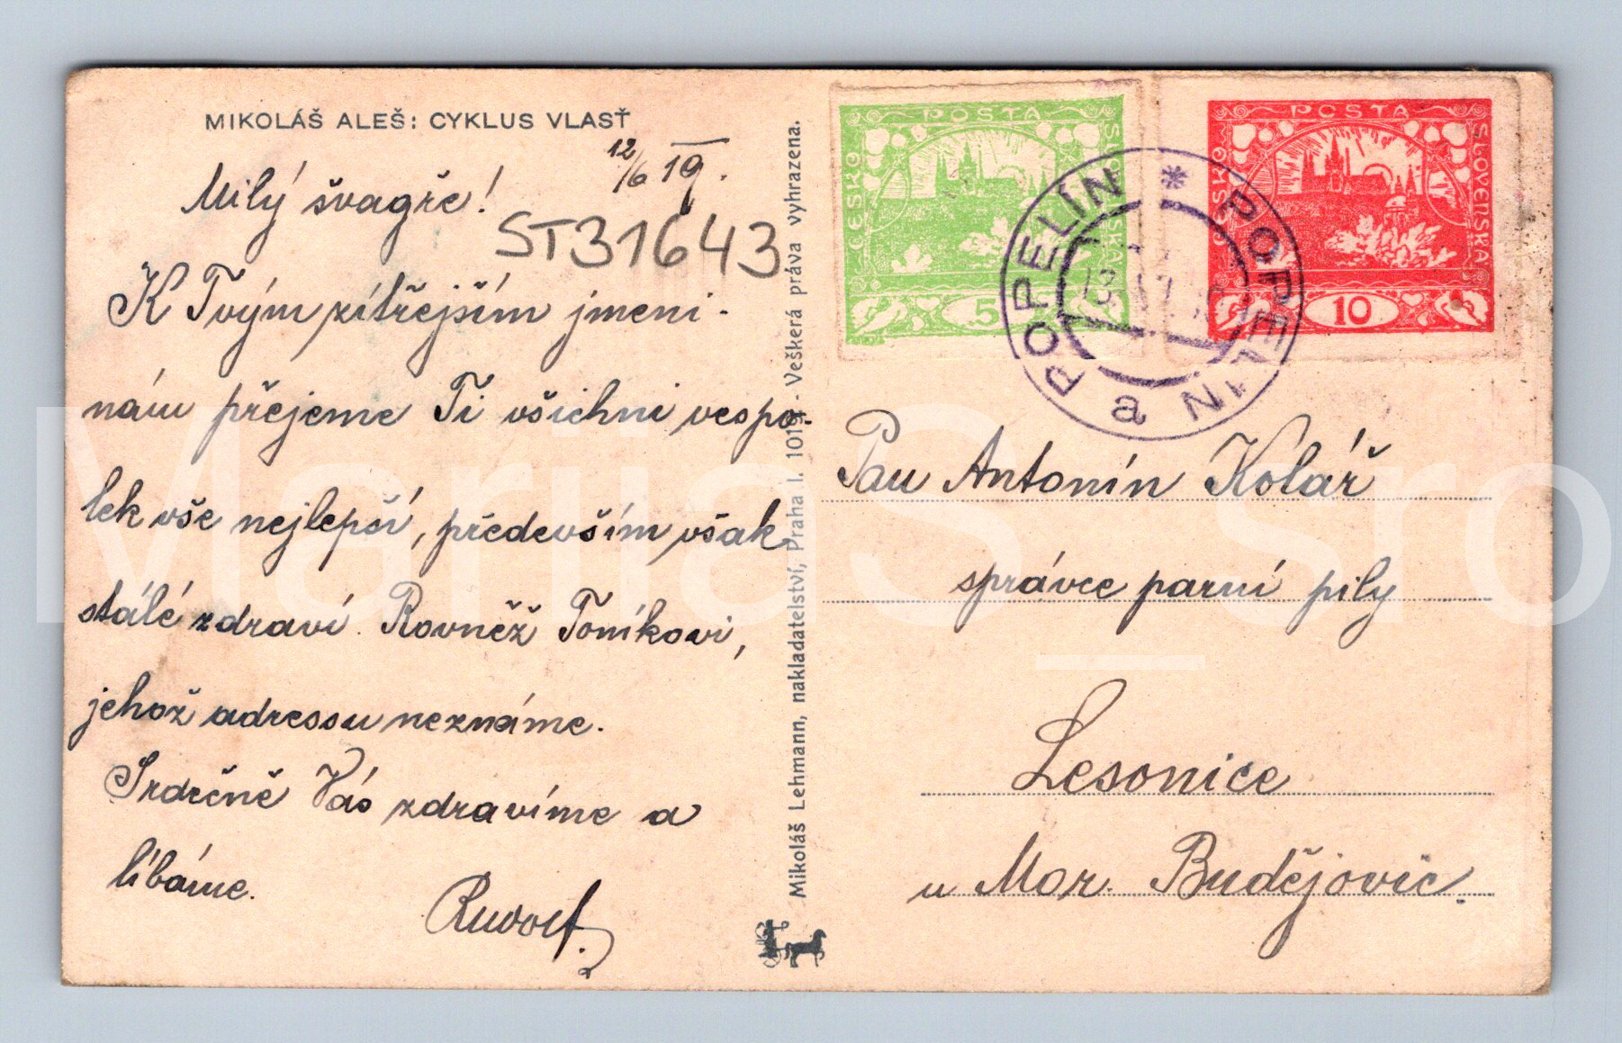 MIKOLÁŠ ALEŠ: CYKLUS VLASŤ
12/6 19.
Milý švagře!
ST31643
K Tvým zítřejším jmeni-
nám přejeme Ti všichni vespo-
lek vše nejlepší, především však
stálé zdraví. Rovněž Toníkovi,
jehož adressu neznáme.
Srdečně Vás zdravíme a
líbáme.
Rudolf.
Mikoláš Lehmann, nakladatelství, Praha I. 1019 - Veškerá práva vyhrazena.
POŠTA
ČESKO
SLOVENSKÁ
5
POŠTA
ČESKO
SLOVENSKÁ
10
* POPELÍN a POPELÍN
Pan Antonín Kolář
správce parní pily
Lesonice
u Mor. Budějovic.
MarijaS_sro